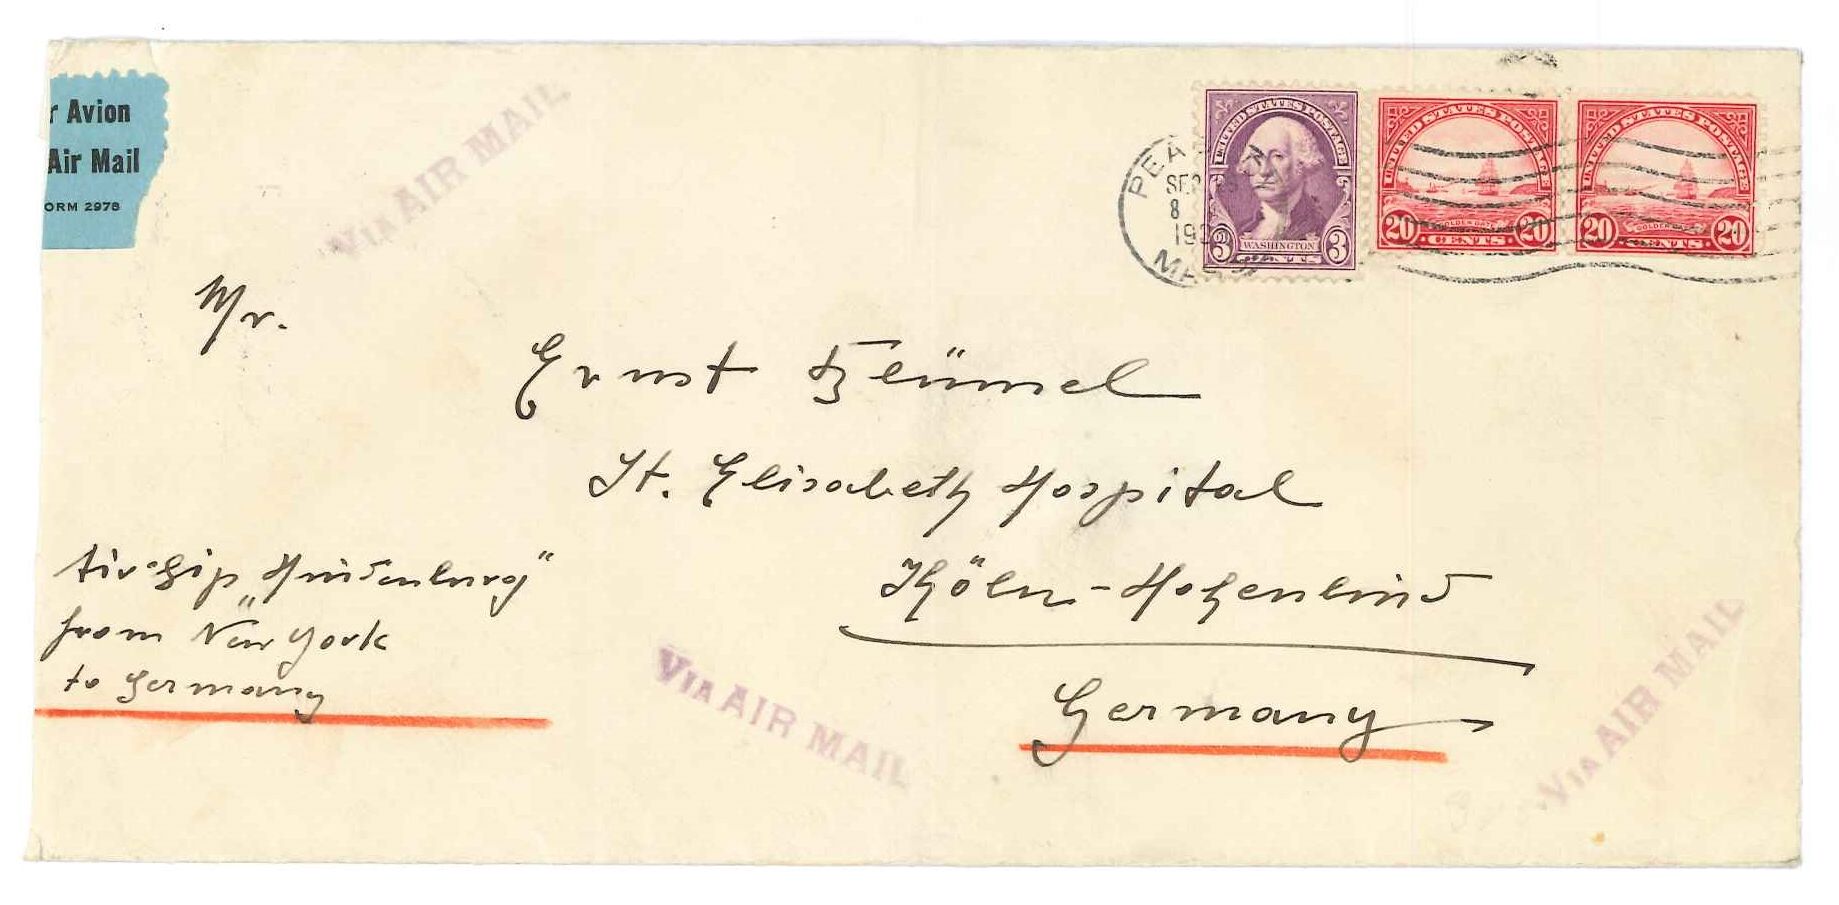 r Avion
Air Mail
ORM 2978
VIA AIR MAIL
UNITED STATES POSTAGE
WASHINGTON
3 CENTS 3
UNITED STATES POSTAGE
GOLDEN GATE
20 CENTS 20
UNITED STATES POSTAGE
GOLDEN GATE
20 CENTS 20
PEA
SEP
8
193
MASS
Mr.
Ernst
St. Elisabeth Hospital
Köln-Hohenlind
Germany
Airship „Hindenburg“
from New York
to Germany
VIA AIR MAIL
VIA AIR MAIL